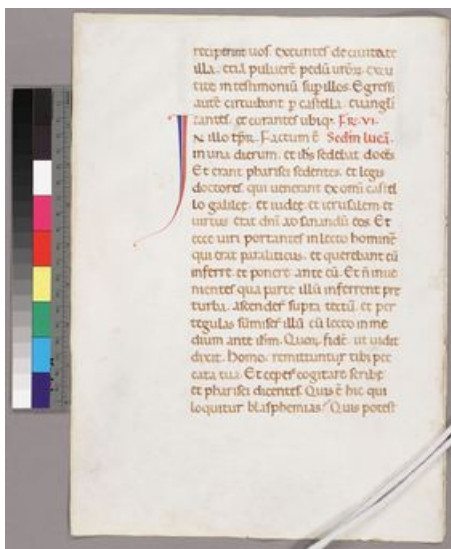 reciperint uos. exeuntes de ciuitate
illa. etiā puluerē pedū ur̄oꝝ. excu
tite in testimoniū sup illos. Egressi
autē circuibant p castella. euangli
zantes. et curantes ubiqꝫ. FR. VI.
IN illo tp̄r. Factum ē Sedm lucā.
in una dierum. et ih̄s sedebat docēs
Et erant pharisei sedentes. et legis
doctores. qui uenerant ex omi castel
lo galilee. et iudee. et ierusalem. et
uirtus erat dn̄i ad sanandū eos. Et
ecce uiri portantes in lecto hominē
qui erat paraliticus. et querebant eū
inferre. et ponere ante eū. Et n̄ inue
nientes qua parte illū inferrent pre
turba. ascender̄ supra tectū. et per
tegulas sūmiser̄ illū cū lecto in me
dium ante ih̄m. Quoꝝ fidē. ut uidit
dixit. Homo. remittuntur tibi pec
cata tua. Et ceper̄ cogitare scribe
et pharisei dicentes. Quis ē hic qui
loquitur blasphemias? Quis potest